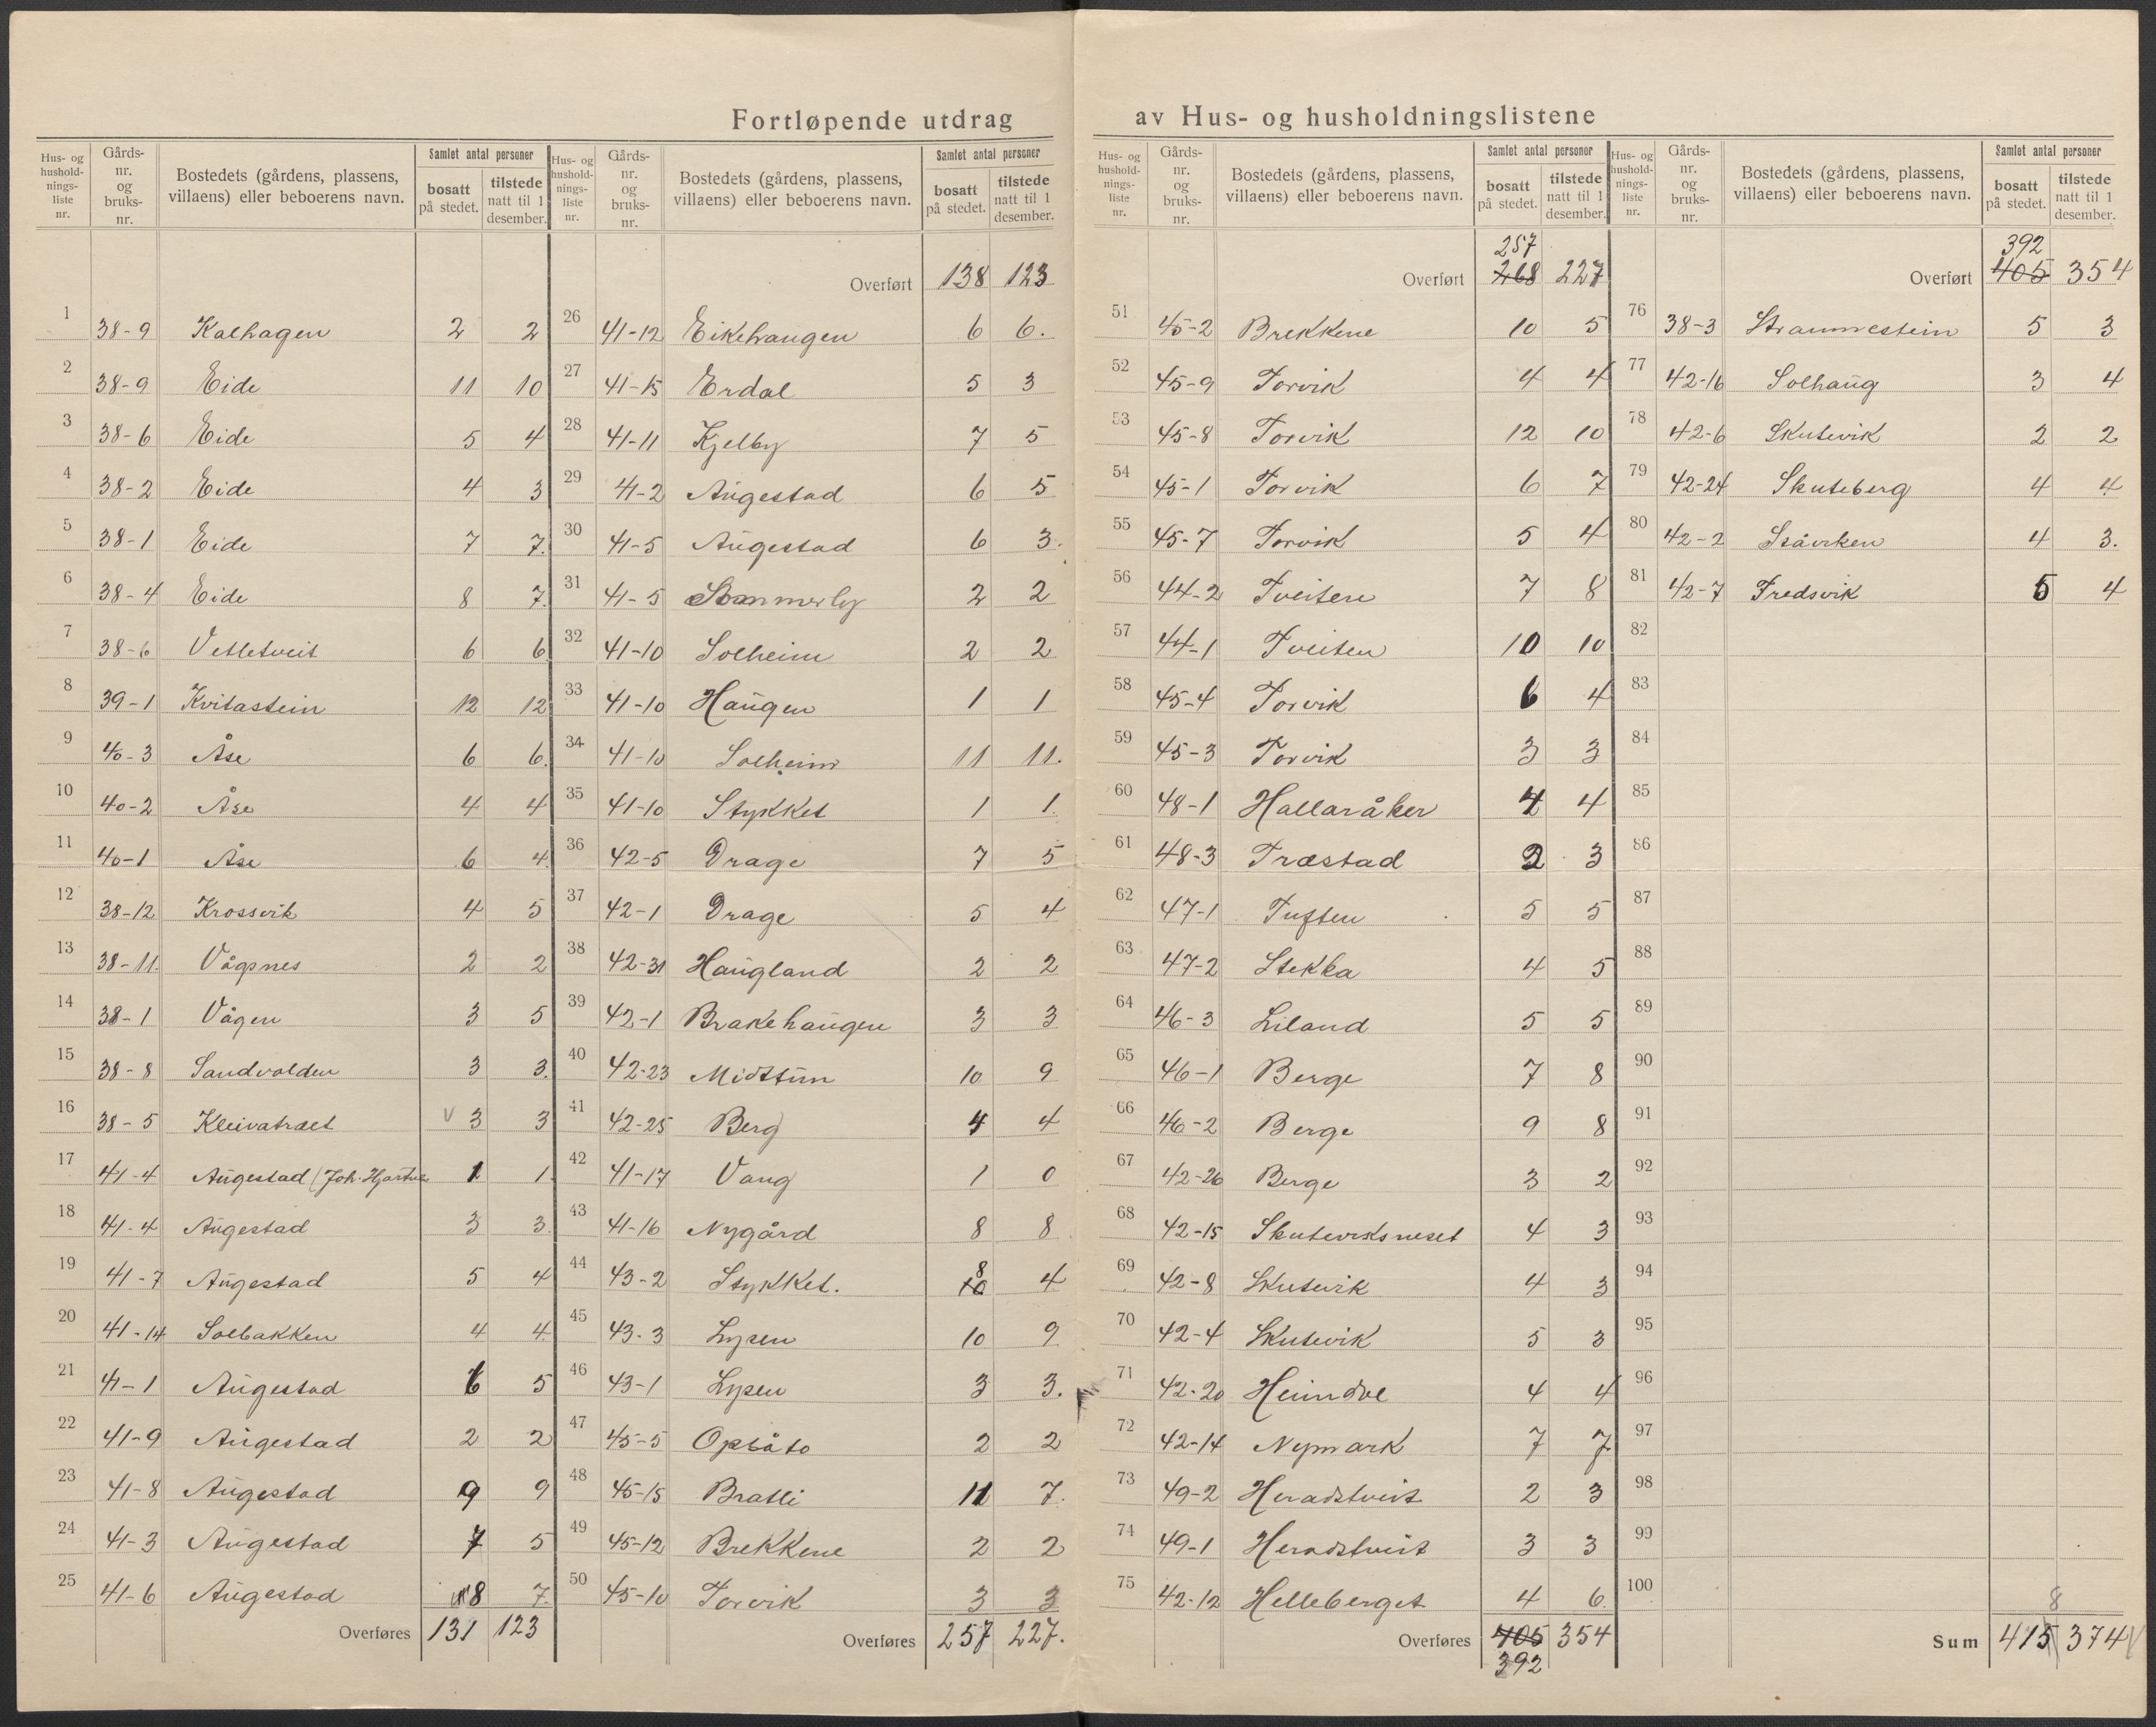 Fortløpende utdrag av Hus- og husholdningslistene
Hus- og husholdningsliste nr. | Gårds-nr. og bruks-nr. | Bostedets (gårdens, plassens, villaens) eller beboerens navn. | Samlet antal personer | bosatt på stedet. | tilstede natt til 1 desember.
1 38-9 Kalhagen 2 2
2 38-9 Eide 11 10
3 38-6 Eide 5 4
4 38-2 Eide 4 3
5 38-1 Eide 7 7.
6 38-4 Eide 8 7.
7 38-6 Vetletveit 6 6
8 39-1 Kvitastein 12 12
9 40-3 Åse 6 6.
10 40-2 Åse 4 4
11 40-1 Åse 6 4
12 38-12 Krossvik 4 5
13 38-11. Vågsnes 2 2
14 38-1 Vågen 3 5
15 38-8 Sandvolden 3 3.
16 38-5 Kleivatræet V 3 3
17 41-4 Augestad (Joh. Hjartnes 1 1
18 41-4 Augestad 3 3.
19 41-7 Augestad 5 4
20 41-14 Solbakken 4 4
21 41-1 Augestad 6 5
22 41-9 Augestad 2 2
23 41-8 Augestad 9 9
24 41-3 Augestad 7 5
25 41-6 Augestad 8 7.
Overføres 131 123
Hus- og husholdningsliste nr. | Gårds-nr. og bruks-nr. | Bostedets (gårdens, plassens, villaens) eller beboerens navn. | Samlet antal personer | bosatt på stedet. | tilstede natt til 1 desember.
Overført 138 123
26 41-12 Eikehaugen 6 6.
27 41-15 Erdal 5 3
28 41-11 Kjelby 7 5
29 41-2 Augestad 6 5
30 41-5 Augestad 6 3.
31 41-5 Sommerly 2 2
32 41-10 Solheim 2 2
33 41-10 Haugen 1 1
34 41-10 Solheim 11 11.
35 41-10 Stykket 1 1.
36 42-5 Drage 7 5
37 42-1 Drage 5 4
38 42-31 Haugland 2 2
39 42-1 Brakehaugen 3 3
40 42-23 Midttun 10 9
41 42-25 Berg 4 4
42 41-17 Vang 1 0
43 41-16 Nygård 8 8
44 43-2 Stykket. 10 8 4
45 43-3 Lysen 10 9
46 43-1 Lysen 3 3.
47 45-5 Opsåto 2 2
48 45-15 Bratli 11 7.
49 45-12 Brekkene 2 2
50 45-10 Torvik 3 3
Overføres 257 227.
Hus- og husholdningsliste nr. | Gårds-nr. og bruks-nr. | Bostedets (gårdens, plassens, villaens) eller beboerens navn. | Samlet antal personer | bosatt på stedet. | tilstede natt til 1 desember.
257
Overført 268 227
51 45-2 Brekkene 10 5
52 45-9 Torvik 4 4
53 45-8 Torvik 12 10
54 45-1 Torvik 6 7
55 45-7 Torvik 5 4
56 44-2 Tveiten 7 8
57 44-1 Tveiten 10 10
58 45-4 Torvik 6 4
59 45-3 Torvik 3 3
60 48-1 Hallaråker 4 4
61 48-3 Træstad 2 3
62 47-1 Tuften 5 5
63 47-2 Stekka 4 5
64 46-3 Liland 5 5
65 46-1 Berge 7 8
66 46-2 Berge 9 8
67 42-26 Berge 3 2
68 42-15 Skuteviksneset 4 3
69 42-8 Skutevik 4 3
70 42-4 Skutevik 5 3
71 42-20 Heimdal 4 4
72 42-14 Nymark 7 7
73 49-2 Heradstveit 2 3
74 49-1 Heradstveit 3 3
75 42-12 Helleberget 4 6.
Overføres 405 354
392
Hus- og husholdningsliste nr. | Gårds-nr. og bruks-nr. | Bostedets (gårdens, plassens, villaens) eller beboerens navn. | Samlet antal personer | bosatt på stedet. | tilstede natt til 1 desember.
392
Overført 405 354
76 38-3 Straumestein 5 3
77 42-16 Solhaug 3 4
78 42-6 Skutevik 2 2
79 42-24 Skuteberg 4 4
80 42-2 4 3.
81 42-7 Fredsvik 5 4
82
83
84
85
86
87
88
89
90
91
92
93
94
95
96
97
98
99
100
8
Sum 415 374 V